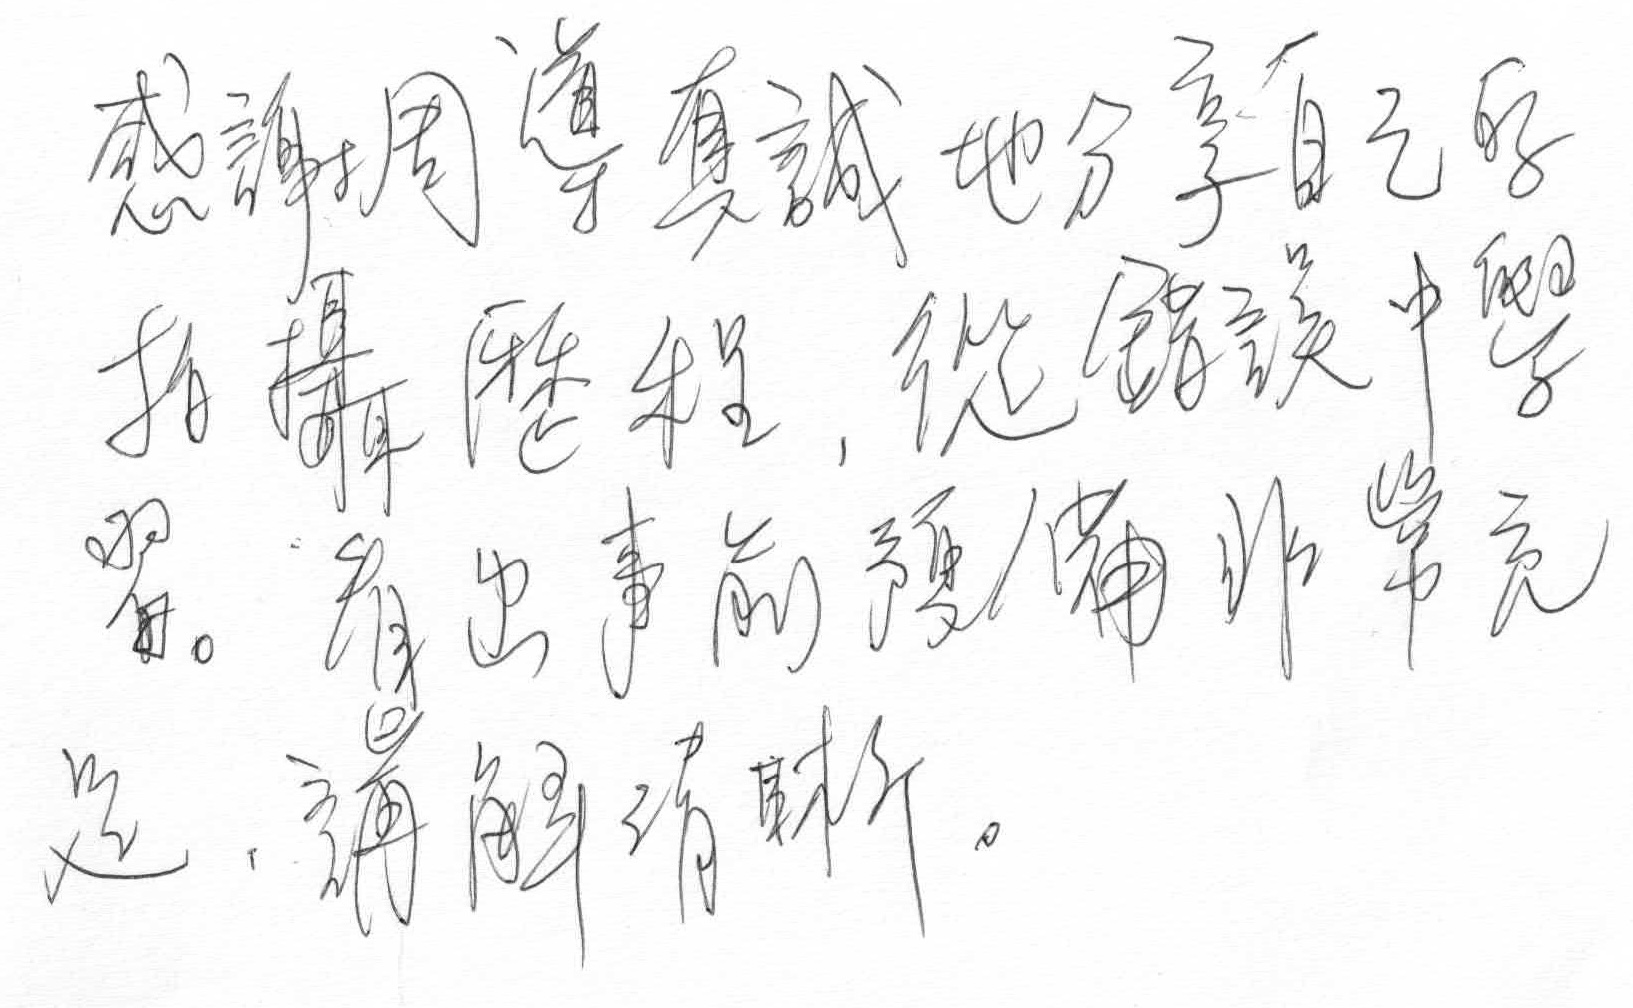 感謝周導真誠地分享自己的
拍攝歷程,從錯誤中學
習。看出事前預備非常充
足,講解清晰。